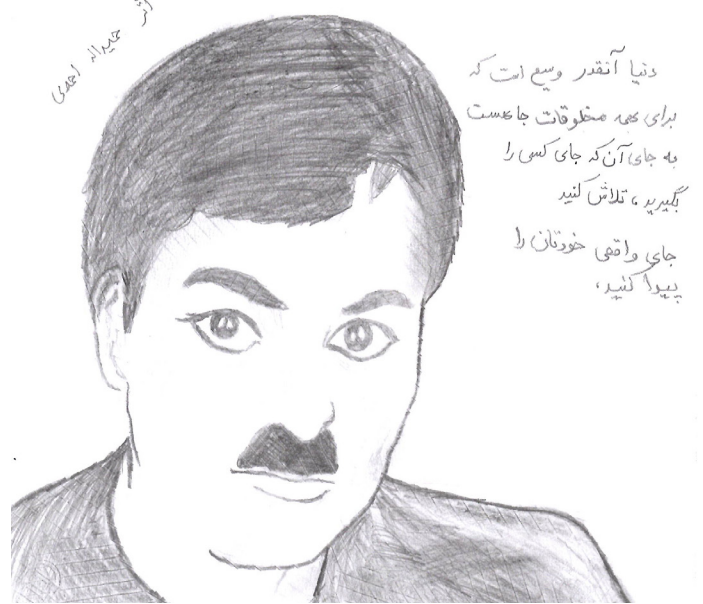 اثر حمیداله احمدی
دنیا آنقدر وسیع است که
برای همه مخلوقات جا هست
به جای آن که جای کسی را
بگیرید، تلاش کنید
جای واقعی خودتان را
پیدا کنید،